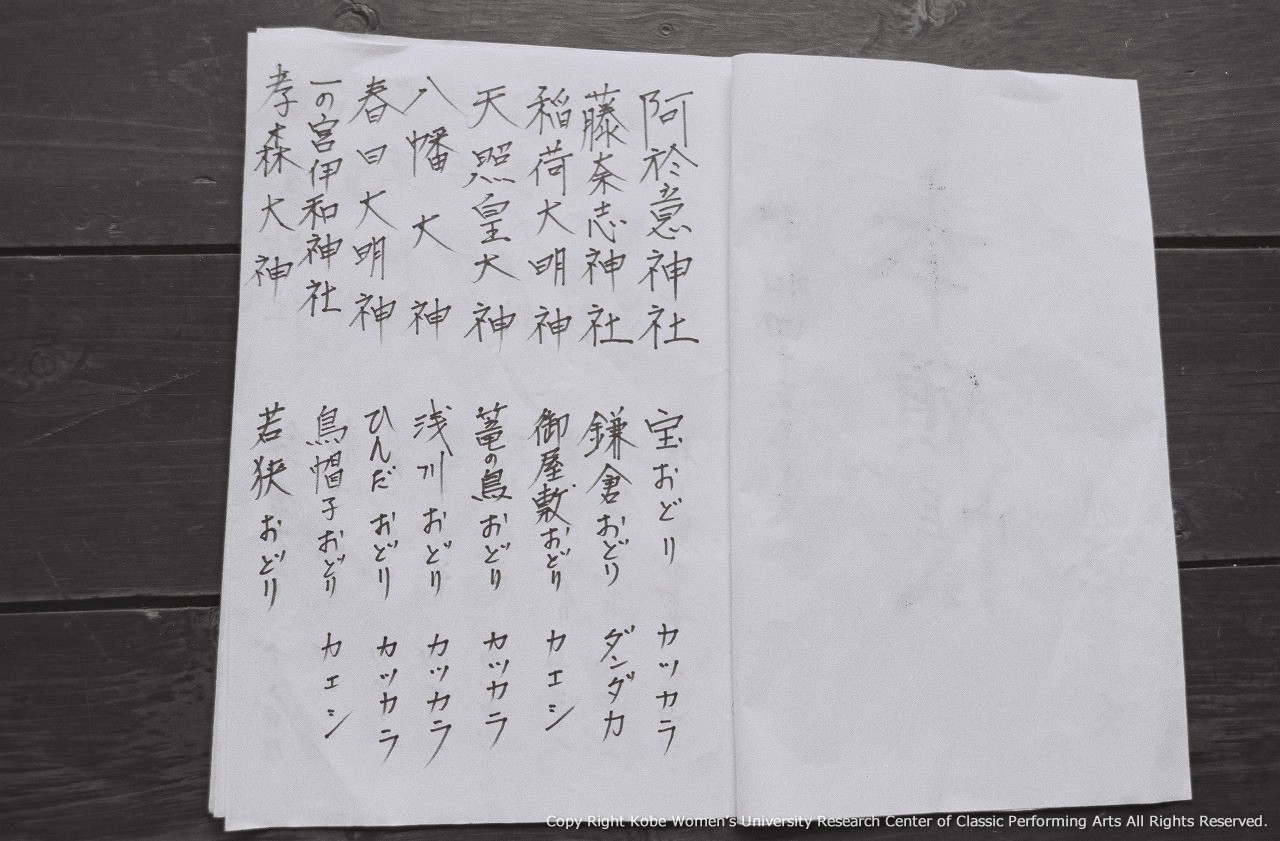 阿於意神社 宝おどり カッカラ
藤奈志神社 鎌倉おどり ダンダカ
稲荷大明神 御屋敷おどり カエシ
天照皇大神 篭の鳥おどり カツカラ
八幡大神 浅川おどり カツカラ
春日大明神 ひんだおどり カッカラ
一の宮伊和神社 烏帽子おどり カエシ
孝森大神 若狭おどり
Copy Right Kobe Women's University Research Center of Classic Performing Arts All Rights Reserved.